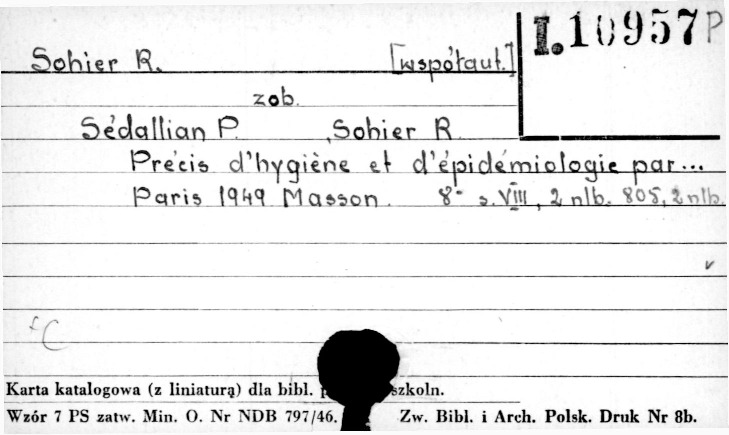 I.10957P
Sohier R. [współaut.]
zob.
Sédallian P. , Sohier R.
Précis d'hygiène et d'épidémiologie par...
Paris 1949 Masson. 8° s. VIII, 2 nlb. 805, 2 nlb.
Karta katalogowa (z liniaturą) dla bibl. szkoln.
Wzór 7 PS zatw. Min. O. Nr NDB 797/46. Zw. Bibl. i Arch. Polsk. Druk Nr 8b.